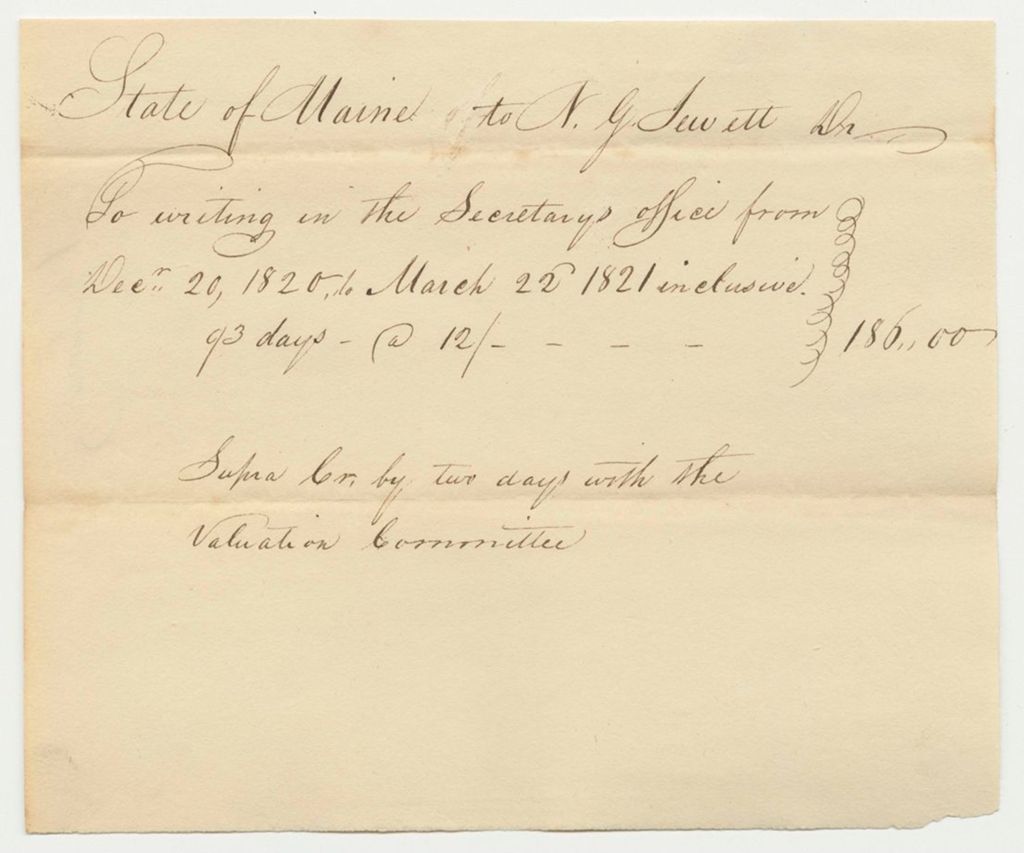 State of Maine to N. G. Jewett Dr
To writing in the Secretarys office from
Decr. 20, 1820, to March 22 1821 inclusive.
93 days - @ 12/- - - - 186,,00
Supra Cr. by two days with the
Valuation Committee